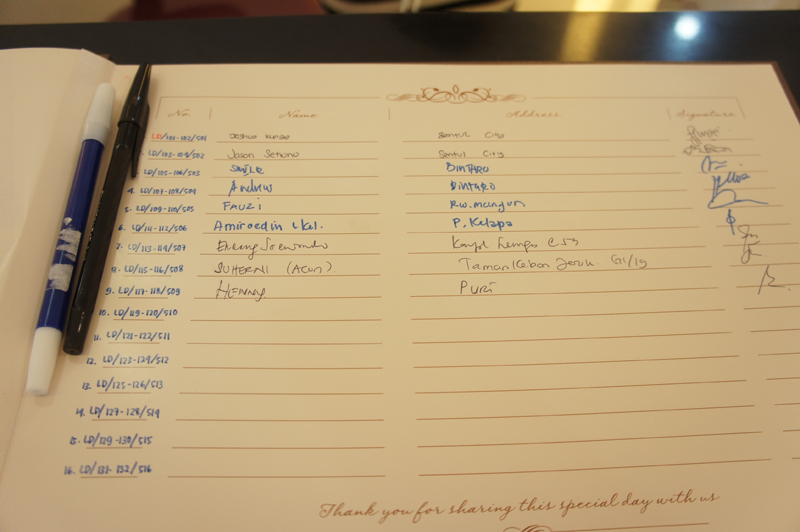 No. Name Address Signature
LD/101-102/501 Joshua Sentul City
LD/103-104/502 Jason Setiono Sentul City
LD/105-106/503 SMILE BINTARO
4. LD/107-108/504 Andrew BINTARO
5. LD/109-110/505 FAUZI R.w.mangun
6. LD/111-112/506 Amiroedin & kel. P. Kelapa
7. LD/113-114/507
LD/115-116/508 SUHERNI (Acun) Taman Kebon Jeruk G1/19
9. LD/117-118/509 HENNY PURI
10. LD/119-120/510
11. LD/121-122/511
12. LD/123-124/512
13. LD/125-126/513
14. LD/127-128/514
15. LD/129-130/515
16. LD/131-132/516
Thank you for sharing this special day with us